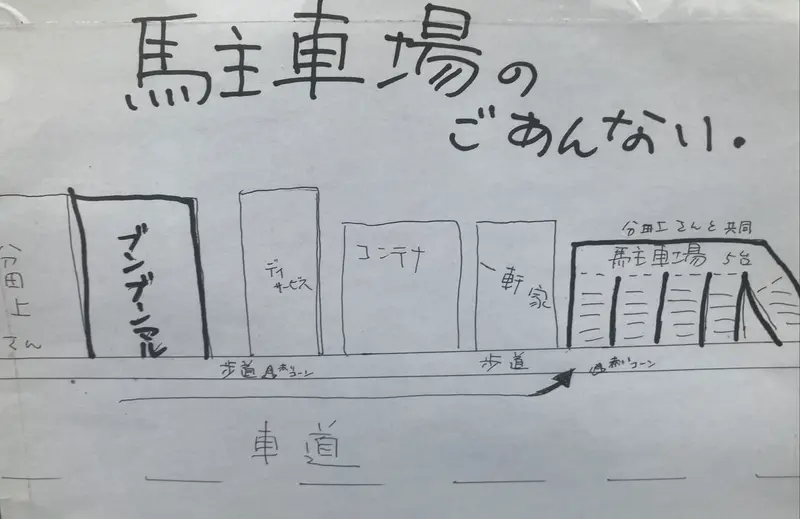 駐車場の
ごあんない。
分田上
さん
ブンブーンマル
デイ
サービス
コンテナ
一軒家
分田上さんと共同
駐車場 5台
歩道 赤いコーン
歩道
赤いコーン
車道